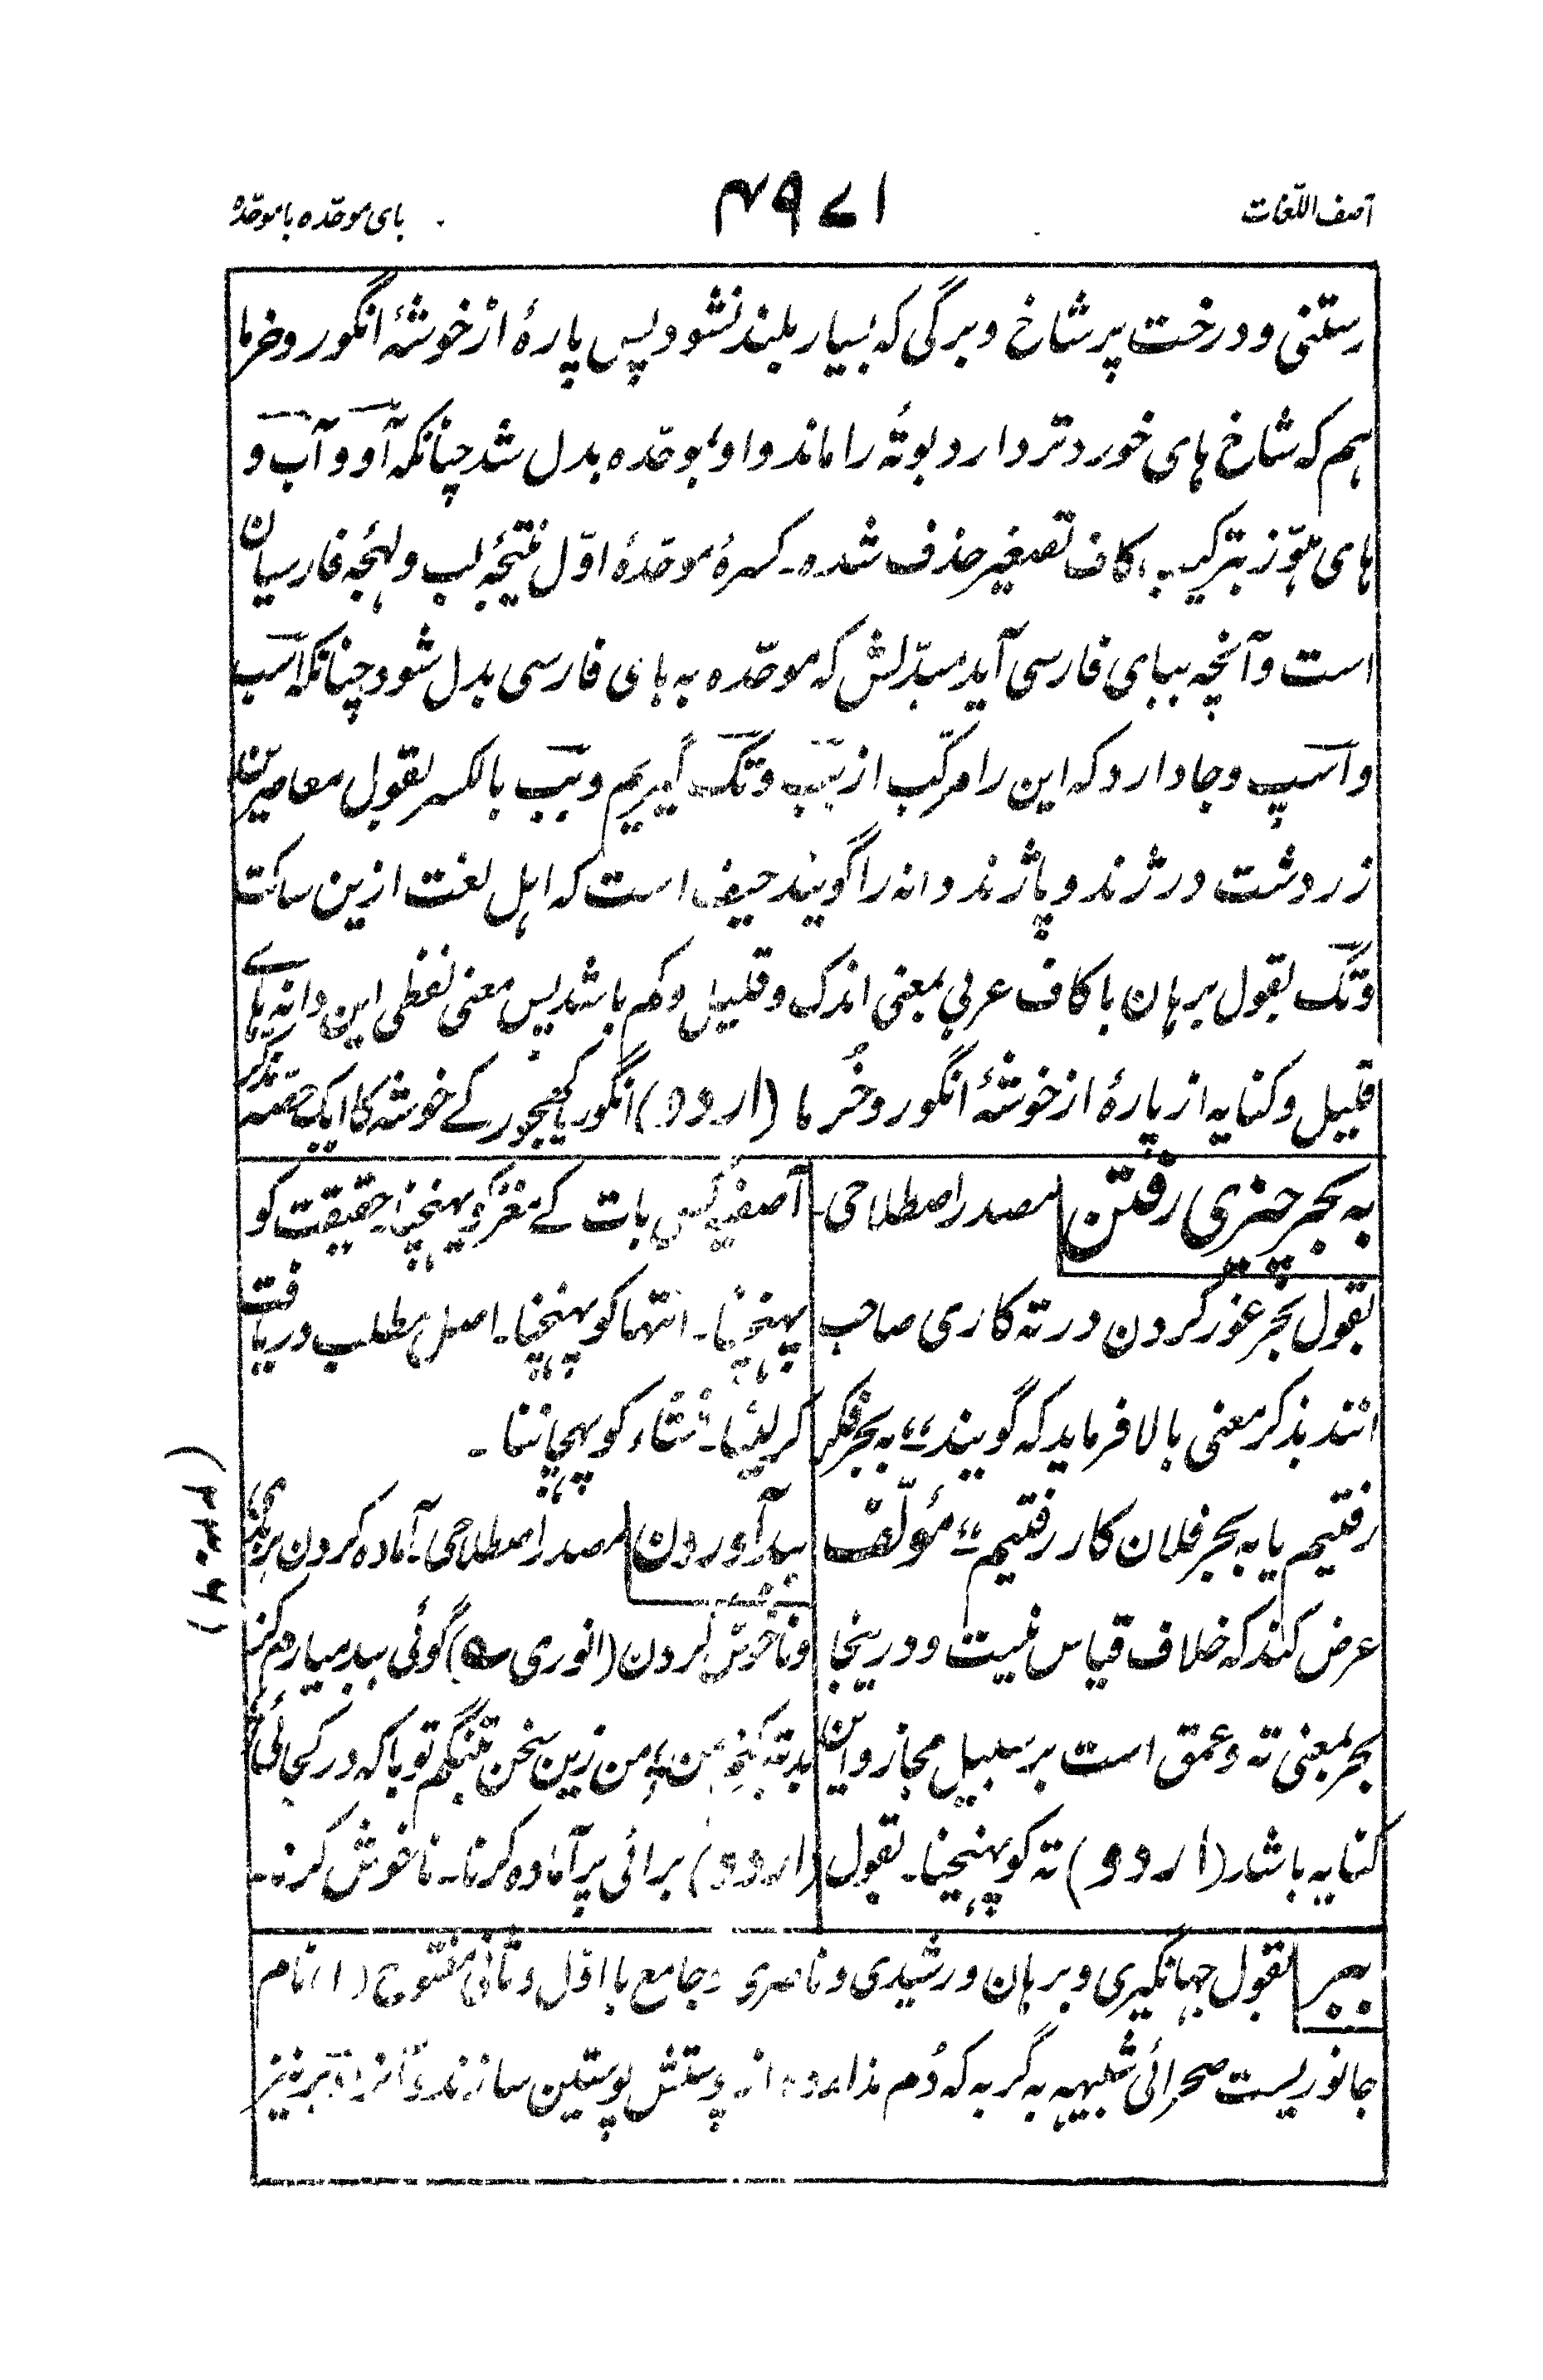 آصف اللّغات
۴۹۷۱
بای موحّده با موحّدہ
رستنی و درخت پر شاخ و برگی که بسیار بلند نشود پس پارۂ از خوشۂ انگور و خرما
هم که شاخ های خورد تر دارد بوتۂ را ماند واو بموحّده بدل شد چنانکه آو و آب و
های هوّز بترکیب کاف تصغیر حذف شده ۔ کسرۂ موحّدۂ اوّل نتیجۂ لب و لهجۂ فارسیان
است و آنچه ببای فارسی آید مبدّلش که موحّده به بای فارسی بدل شود چنانکه اسب
و اسپ و جا دارد که این را مرکّب از بب و تک گیریم و بب بالکسر بقول معاصرین
زردشت در ژند و پاژند دانه را گویند حیف است که اهل لغت ازین ساکت
و تک بقول برهان با کاف عربی بمعنی اندک و قلیل و کم باشد پس معنی لفظی این دانه ہاے
قلیل و کنایه از پارۂ از خوشۂ انگور و خُرما (اردو) انگور یا کھجور کے خوشہ کا ایک حصّہ مذکر
به بحر چیزی رفتن مصدر اصطلاحی۔
بقول بحر غور کردن در ته کاری صاحب
انند بذکر معنی بالا فرماید که گویند “به بحر فکر
رفتیم یا به بحر فلان کار رفتیم” مؤلّف
عرض کند که خلاف قیاس نیست و درینجا
بحر بمعنی ته و عمق است بر سبیل مجاز و این
کنایه باشد (اردو) ته کو پہنچنا۔ بقول
آصفیہ کسی بات کے مغز کو پہنچنا۔ حقیقت کو
پہنچنا۔ انتہا کو پہنچنا۔ اصل مطلب دریافت
کر لینا۔ منشاء کو پہچاننا۔
ببد آوردن مصدر اصطلاحی۔ آماده کردن بر بدی
و ناخوش کردن (انوری ؎) گوئی ببد میارم
بد من زین سخن تو با که در کجائی
(اردو) برائی پر آمادہ کرنا۔ ناخوش کرنا۔
(۲۳۰۶)
ببر بقول جهانگیری و برهان و رشیدی و ناصری و جامع با اوّل و ثانی مفتوح (۱) نام
جانوریست صحرائی شبیه به گربه که دُم ندارد و از پوستش پوستین سازند و آنرا وبر نیز